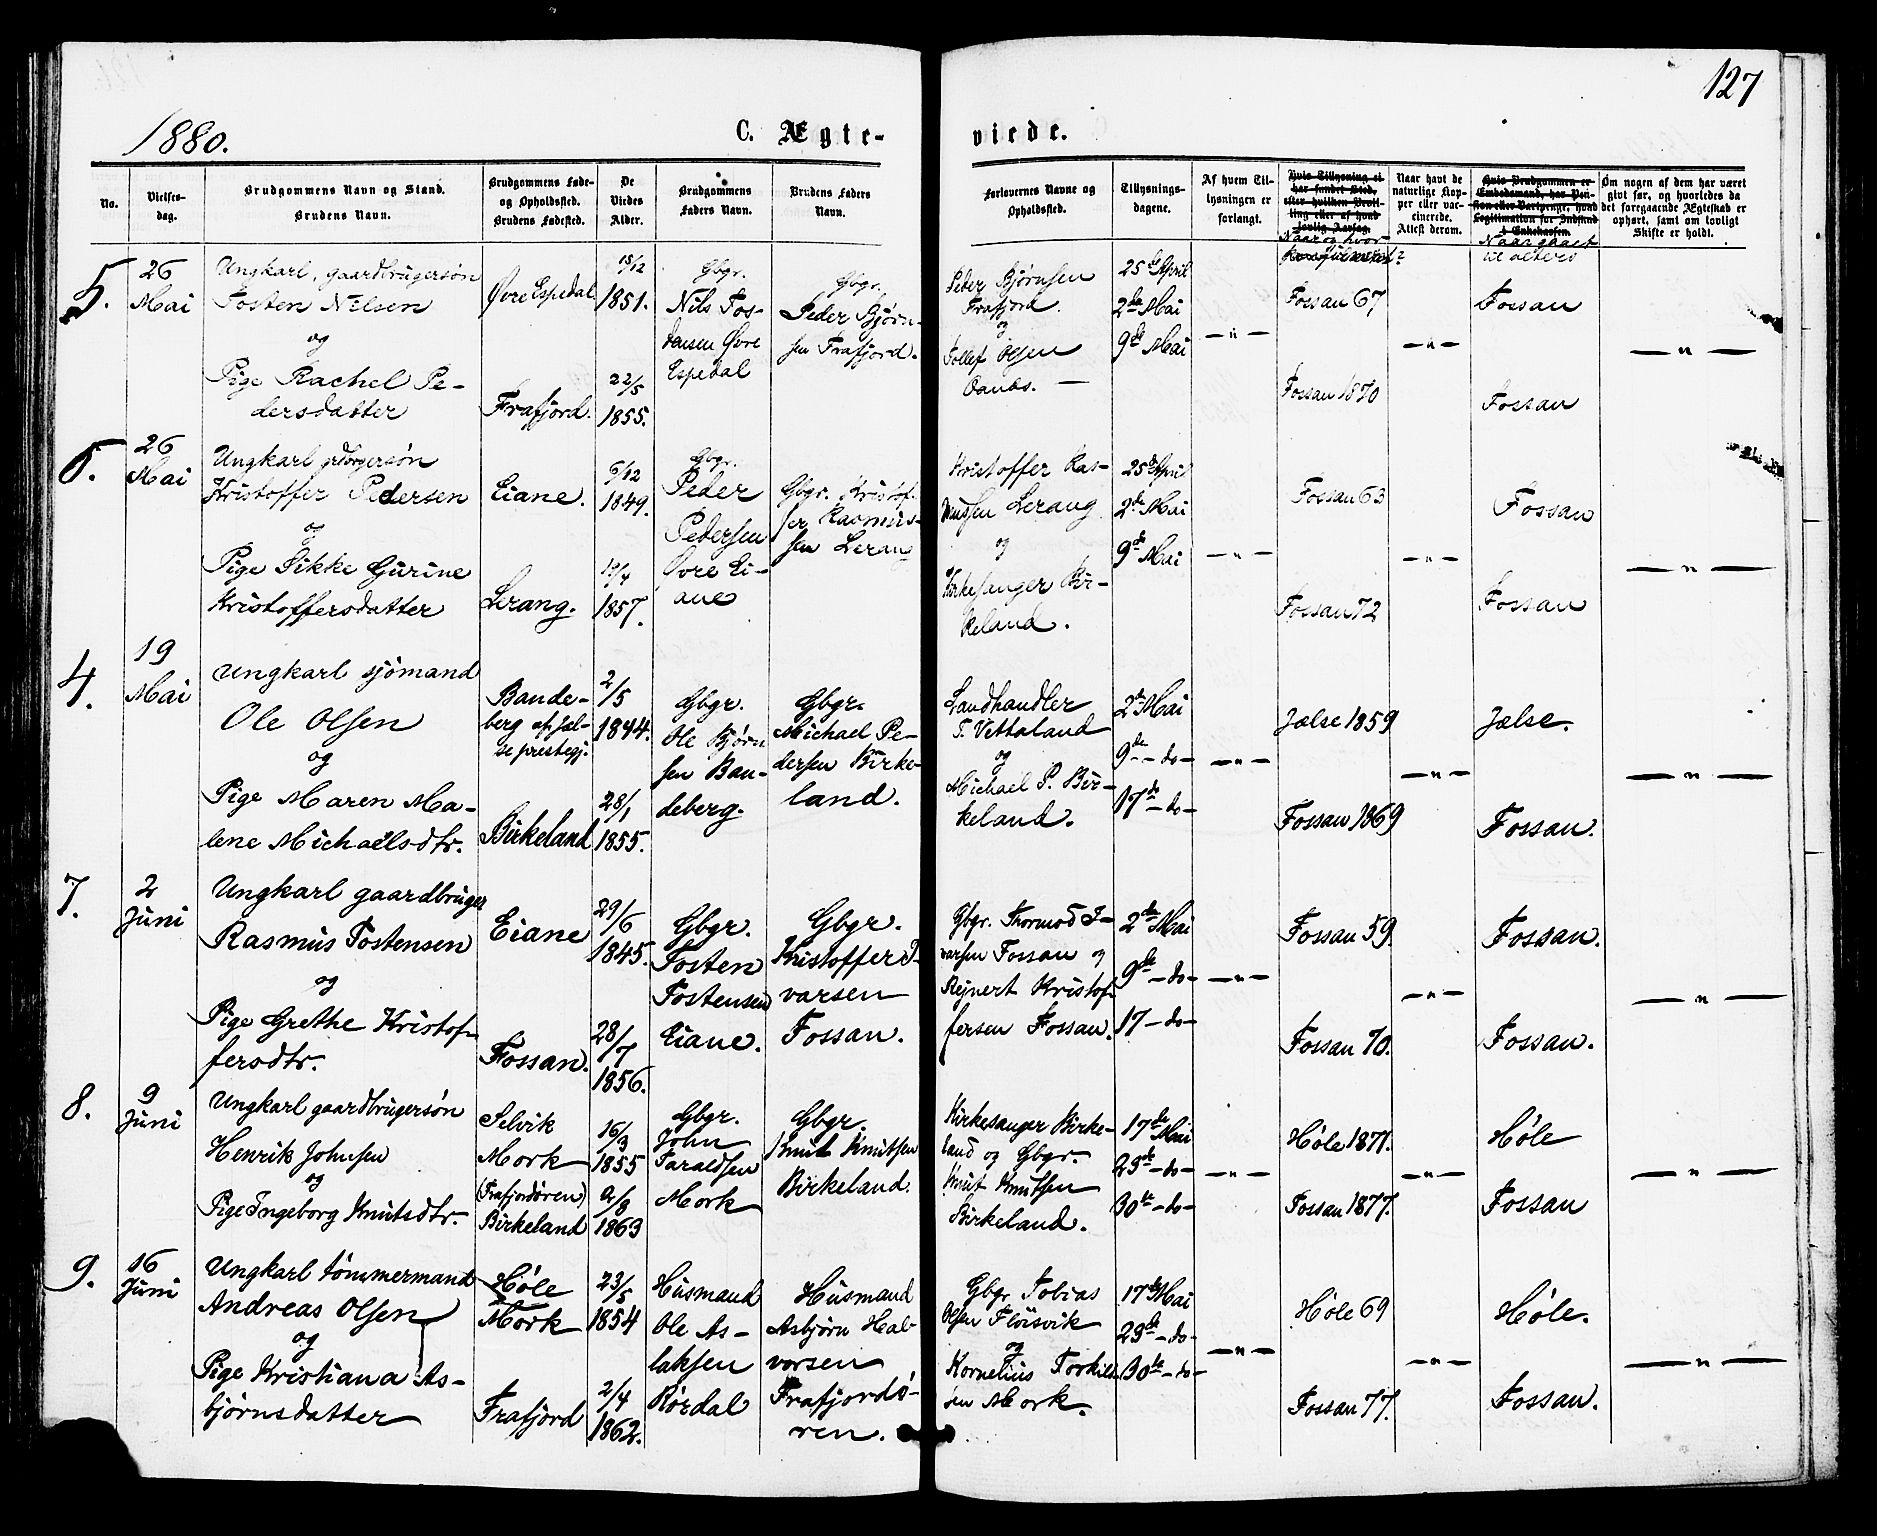 127
1880.
C. Ægte-
viede.
No.
Vielses-
dag.
Brudgommens Navn og Stand.
Brudens Navn.
Brudgommens Føde-
og Opholdssted.
Brudens Fødested.
De
Viedes
Alder.
Brudgommens
Faders Navn.
Brudens Faders
Navn.
Forlovernes Navne og
Opholdssted.
Tillysnings-
dagene.
Af hvem Til-
lysningen er
forlangt.
Hvis Tillysning ei
har fundet Sted,
efter hvilken Bevil-
ling eller af hvad
lovlig Aarsag.
Naar og hvor
Naar havt de
naturlige Kop-
per eller vac-
cinerede.
Attest derom.
Hvis Brudgommen er
Embedsmand, har Pen-
sion eller Vartpenge, hvad
Legitimation for Indskud
i Enkekassen.
Naar gaaet
til alters
Om nogen af dem har været
givt før, og hvorledes da
det foregaaende Ægteskab er
ophørt, samt om lovligt
Skifte er holdt.
5.
26
Mai
Ungkarl, gaardbrugersøn
Tosten Nilsen
og
Pige Rachel Pe-
dersdatter
Øvre Espedal
Frafjord.
18/12
1851.
22/5
1855.
Gbgr.
Nils Tos-
tensen Øvre
Espedal
Gbgr.
Peder Bjørn-
sen Frafjord.
Peder Bjørnsen
Frafjord.
og
Tollef Olsen
25de April
2den Mai
9de Mai
— " —
Fossan 67
Fossan 1870
— " —
Fossan
Fossan
— " —
6.
26
Mai
Ungkarl
Kristoffer Pedersen
og
Pige Sikke Gurine
Kristoffersdatter
Eiane.
Lerang.
6/12
1849.
19/4
1857.
Gbgr.
Peder
Pedersen
Øvre Ei-
ane
Gbgr. Kristof-
fer Rasmus-
sen Lerang
Kristoffer Ras-
mussen Lerang
og
Kirkesanger Bir-
keland.
25de April
2den Mai
9de Mai
— " —
Fossan 63
Fossan 72
— " —
Fossan
Fossan
— " —
4.
19
Mai
Ungkarl sjømand
Ole Olsen
og
Pige Maren Ma-
lene Michaelsdtr.
Bande-
berg af Jæl-
se prestegj.
Birkeland
2/5
1844.
28/1
1855.
Gbgr.
Ole Bjørn
sen Ban-
deberg.
Gbgr.
Michael Pe-
dersen Birke-
land.
Landhandler
T. Vettaland
og
Michael P. Bir-
keland.
2den Mai
9de — do —
17de — do —
— " —
Jælse 1859
Fossan 1869
— " —
Jælse.
Fossan.
— " —
7.
2
Juni
Ungkarl gaardbruger
Rasmus Tostensen
og
Pige Grethe Kristof-
fersdtr.
Eiane
Fossan.
29/6
1845.
28/7
1856.
Gbgr.
Tosten
Tostensen
Eiane.
Gbgr.
Kristoffer I-
varsen
Fossan.
Gbgr. Thormod I-
varsen Fossan og
Rejnert Kristof-
fersen Fossan.
2den Mai
9de — do —
17 — do —
— " —
Fossan 59.
Fossan 70.
— " —
Fossan.
Fossan.
— " —
8.
9
Juni
Ungkarl gaardbrugersøn
Henrik Johnsen
og
Pige Ingeborg Knutsdtr.
Selvik
Mork
(Frafjordøren)
Birkeland
16/3
1855
2/8
1863
Gbgr.
John
Taraldsen
Mork
Gbgr.
Knut Knutsen
Birkeland.
Kirkesanger Birke-
land og Gbgr.
Knut Knutsen
Birkeland.
17de Mai
23de — do —
30te — do —
— " —
Høle 1871.
Fossan 1877.
— " —
Høle
Fossan
— " —
9.
16
Juni
Ungkarl tømmermand
Andreas Olsen
og
Pige Kristiana As-
bjørnsdatter
Høle
Mork
Frafjord
23/5
1854
2/4
1862.
Husmand
Ole As-
laksen
Rørdal
Husmand
Asbjørn Hal-
vorsen
Frafjordø-
ren.
Gbgr Tobias
Olsen Fløisvik
og
Kornelius Torkild-
sen Mork.
17de Mai
23de — do —
30te — do
— " —
Høle 69
Fossan 77.
— " —
Høle.
Fossan.
— " —